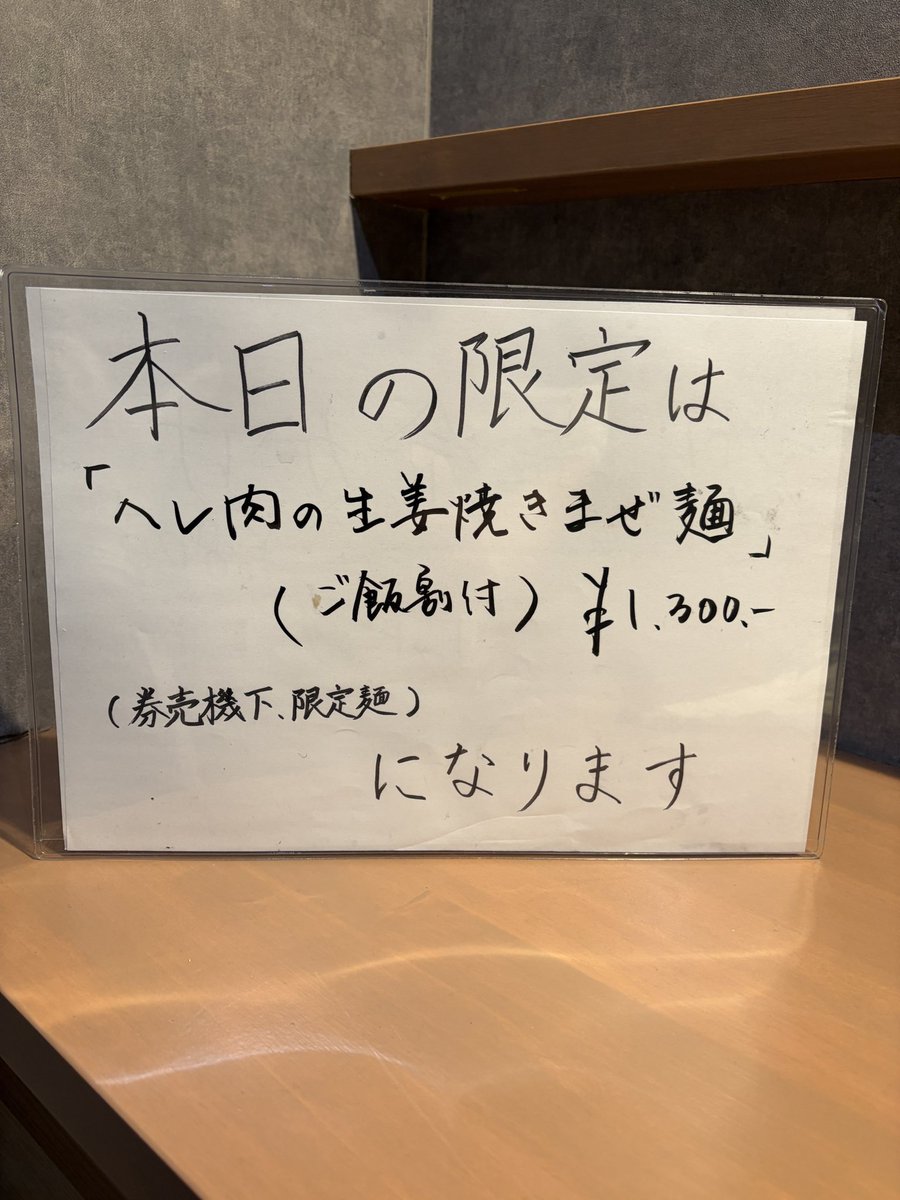 本日の限定は
「ヘレ肉の生姜焼きまぜ麺」
(ご飯割付) ¥1,300.-
(券売機下、限定麺)
になります